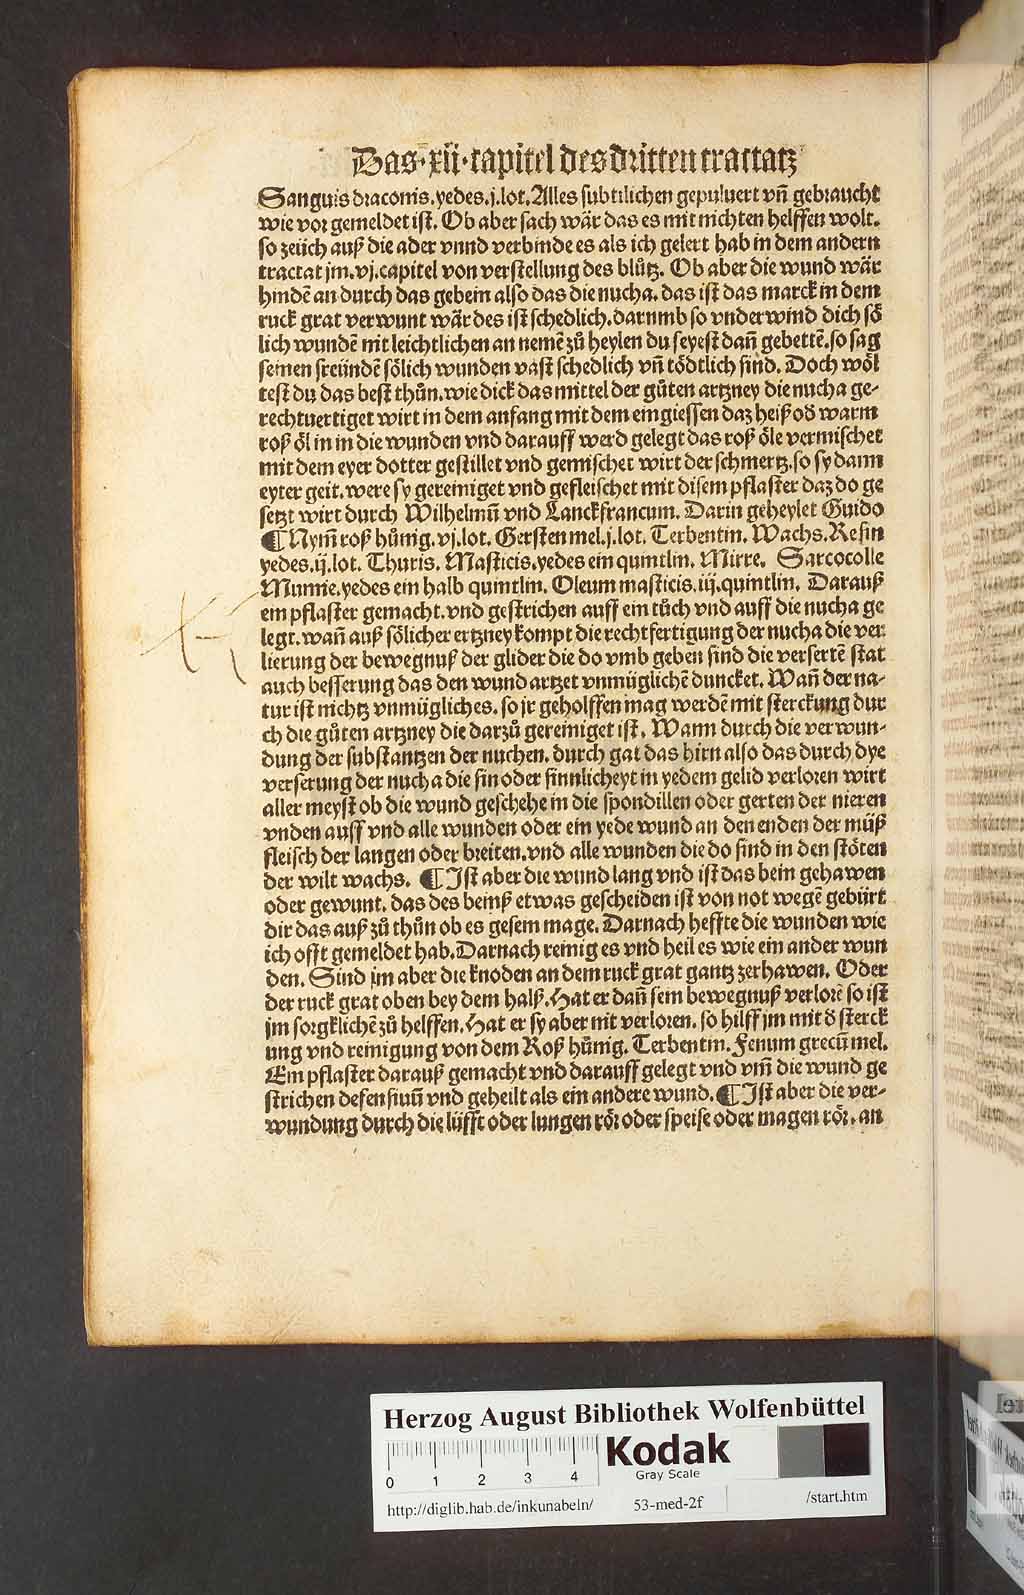 Das·xii·capitel des dritten tractatz
Sanguis draconis.yedes.j.lot.Alles subtilichen gepuluert vñ gebraucht
wie vor gemeldet ist. Ob aber sach wär das es mit nichten helffen wolt.
so zeüch auß die ader vnnd verbinde es als ich gelert hab in dem andern
tractat jm.vj.capitel von verstellung des blůtz. Ob aber die wund wär
hindē an durch das gebein also das die nucha. das ist das marck in dem
ruck grat verwunt wär des ist schedlich.darumb so vnderwind dich sö̃
lich wundē nit leichtlichen an nemē zů heylen du seyest dañ gebettē.so sag
seinen freündē sölich wunden vast schedlich vñ tödtlich sind. Doch wöl
test du das best thůn.wie dick das mittel der gůten artzney die nucha ge-
rechtuertiget wirt in dem anfang mit dem eingiessen daz heiß od̃ warm
roß öl in in die wunden vnd darauff werd gelegt das roß öle vermischet
mit dem eyer dotter gestillet vnd gemischet wirt der schmertz.so sy dann
eyter geit.were sy gereiniget vnd gefleischet mit disem pflaster daz do ge
setzt wirt durch Wilhelmū vnd Lanckfrancum. Darin geheylet Guido
¶ Nym̄ roß hůnig.vj.lot. Gersten mel.j.lot. Terbentin. Wachs. Resin
yedes.ij.lot. Thuris. Masticis.yedes ein quintlin. Mirre. Sarcocolle
Mumie.yedes ein halb quintlin. Oleum masticis.iij.quintlin. Darauß
ein pflaster gemacht.vnd gestrichen auff ein tůch vnd auff die nucha ge
legt.wañ auß sölicher ertzney kompt die rechtfertigung der nucha die ver
lierung der bewegnuß der glider die do vmb geben sind die versertē stat
auch besserung das den wund artzet vnmüglichē duncket. Wañ der na-
tur ist nichtz vnmügliches.so jr geholffen mag werdē mit sterckung dur
ch die gůten artzney die darzů gereiniget ist. Wann durch die verwun-
dung der substantzen der nuchen.durch gat das hirn also das durch dye
verserung der nucha die sin oder sinnlicheyt in yedem gelid verloren wirt
aller meyst ob die wund geschehe in die spondillen oder gerten der nieren
vnden auff vnd alle wunden oder ein yede wund an den enden der müß
fleisch der langen oder breiten.vnd alle wunden die do sind in den stöten
der wilt wachs. ¶ Ist aber die wund lang vnd ist das bein gehawen
oder gewunt. das des beinß etwas gescheiden ist von not wegē gebürt
dir das auß zů thůn ob es gesein mage. Darnach heffte die wunden wie
ich offt gemeldet hab.Darnach reinig es vnd heil es wie ein ander wun
den. Sind jm aber die knoden an dem ruck grat gantz zerhawen. Oder
der ruck grat oben bey dem halß. Hat er dañ sein bewegnuß verlorē so ist
jm sorgklichē zů helffen. Hat er sy aber nit verloren. so hilff jm mit d̃ sterck
ung vnd reinigung von dem Roß hůnig. Terbentin. Fenum grecū mel.
Ein pflaster darauß gemacht vnd darauff gelegt vnd vm̄ die wund ge
strichen defensiuū vnd geheilt als ein andere wund. ¶ Ist aber die ver-
wundung durch die lüfft oder lungen rör oder speise oder magen rör. an
Herzog August Bibliothek Wolfenbüttel
0 1 2 3 4
Kodak
Gray Scale
http://diglib.hab.de/inkunabeln/ 53-med-2f /start.htm